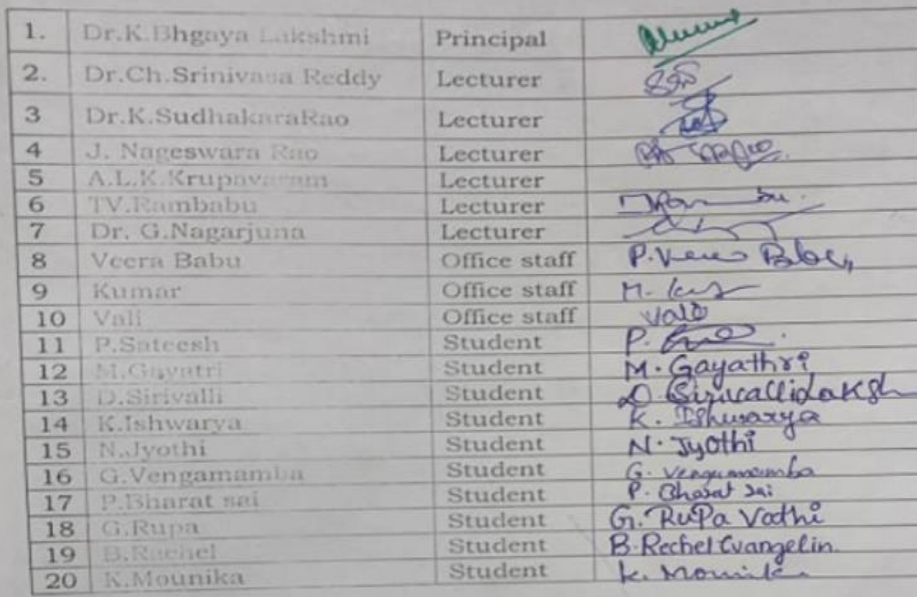 1. Dr.K.Bhgaya Lakshmi Principal
2. Dr.Ch.Srinivasa Reddy Lecturer
3 Dr.K.SudhakaraRao Lecturer
4 J. Nageswara Rao Lecturer
5 A.L.K.Krupavaram Lecturer
6 TV.Rambabu Lecturer
7 Dr. G.Nagarjuna Lecturer
8 Veera Babu Office staff P.Veera Babu
9 Kumar Office staff M.
10 Vali Office staff Vali
11 P.Sateesh Student P.
12 M.Gayatri Student M. Gayathri
13 D.Sirivalli Student D.
14 K.Ishwarya Student K. Ishwarya
15 N.Jyothi Student N. Jyothi
16 G.Vengamamba Student G. Vengamamba
17 P.Bharat sai Student P. Bharat Sai
18 G.Rupa Student G. RuPa Vathi
19 B.Rachel Student B. Rechel Evangelin.
20 K.Mounika Student K. Mounika